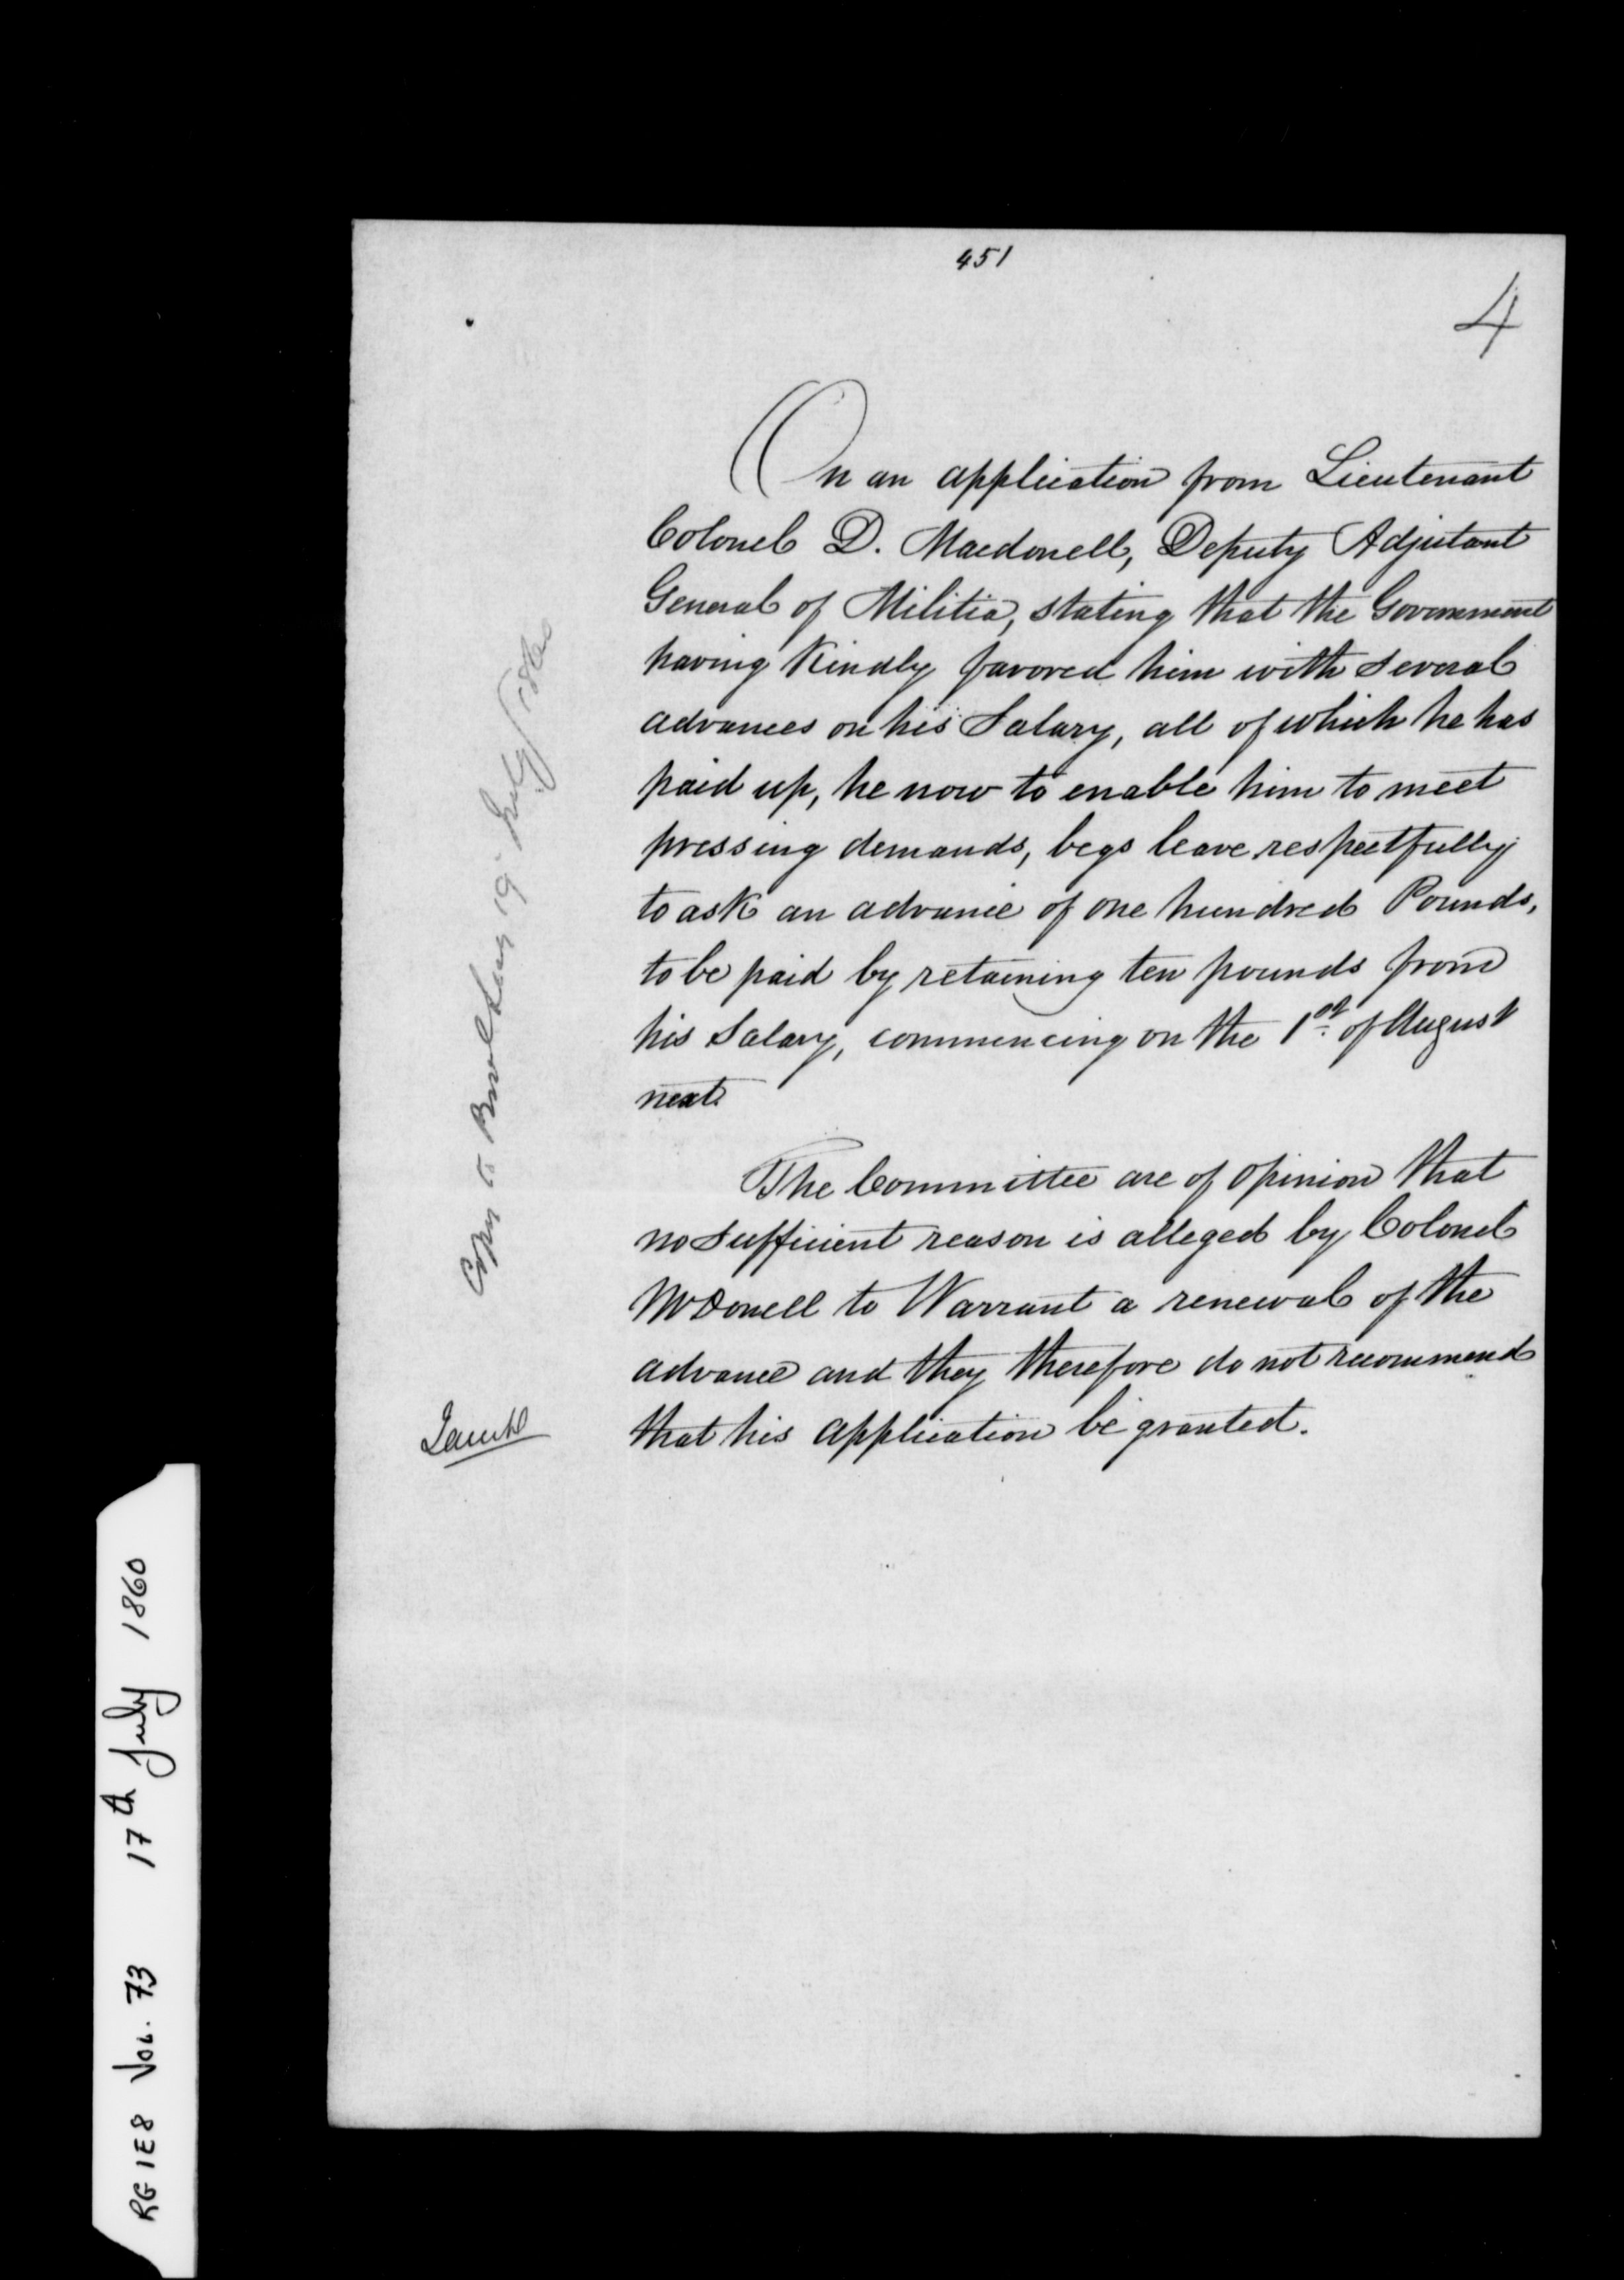 451
4
On an application from Lieutenant
Colonel D. Macdonell, Deputy Adjutant
General of Militia, stating that the Government
having Kindly favored him with several
advances on his Salary, all of which he has
paid up, he now to enable him to meet
pressing demands, begs leave respectfully
to ask an advance of one hundred Pounds,
to be paid by retaining ten pounds from
his Salary, commencing on the 1st of August
next.
The Committee are of opinion that
no sufficient reason is alleged by Colonel
McDonell to Warrant a renewal of the
advance and they therefore do not recommend
that his application be granted.
Copy to 19 July 1860
RG 1E8 VOL. 73 17th July 1860